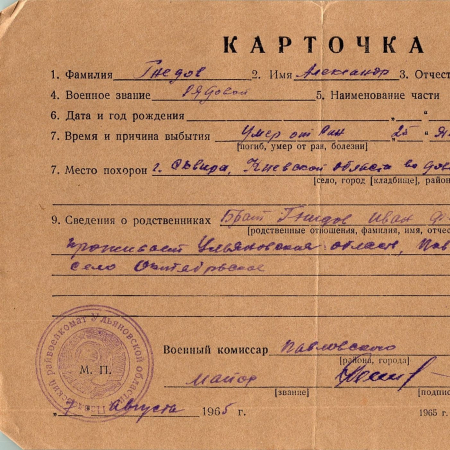 КАРТОЧКА
1. Фамилия Гнедов 2. Имя Александр 3. Отчест
4. Военное звание рядовой 5. Наименование части
6. Дата и год рождения „ “
7. Время и причина выбытия Умер от ран „ 25 “
[погиб, умер от ран, болезни]
7. Место похорон г. Сквира, Киевской области во
[село, город [кладбище], район
9. Сведения о родственниках Брат Гнедов Иван
[родственные отношения, фамилия, имя, отчес
проживает Ульяновская область, Пав
село Октябрьское
Военный комиссар Павловского
[района, города]
М. П.
майор
[звание] [подпис
Августа 1965 г. 1965 г.